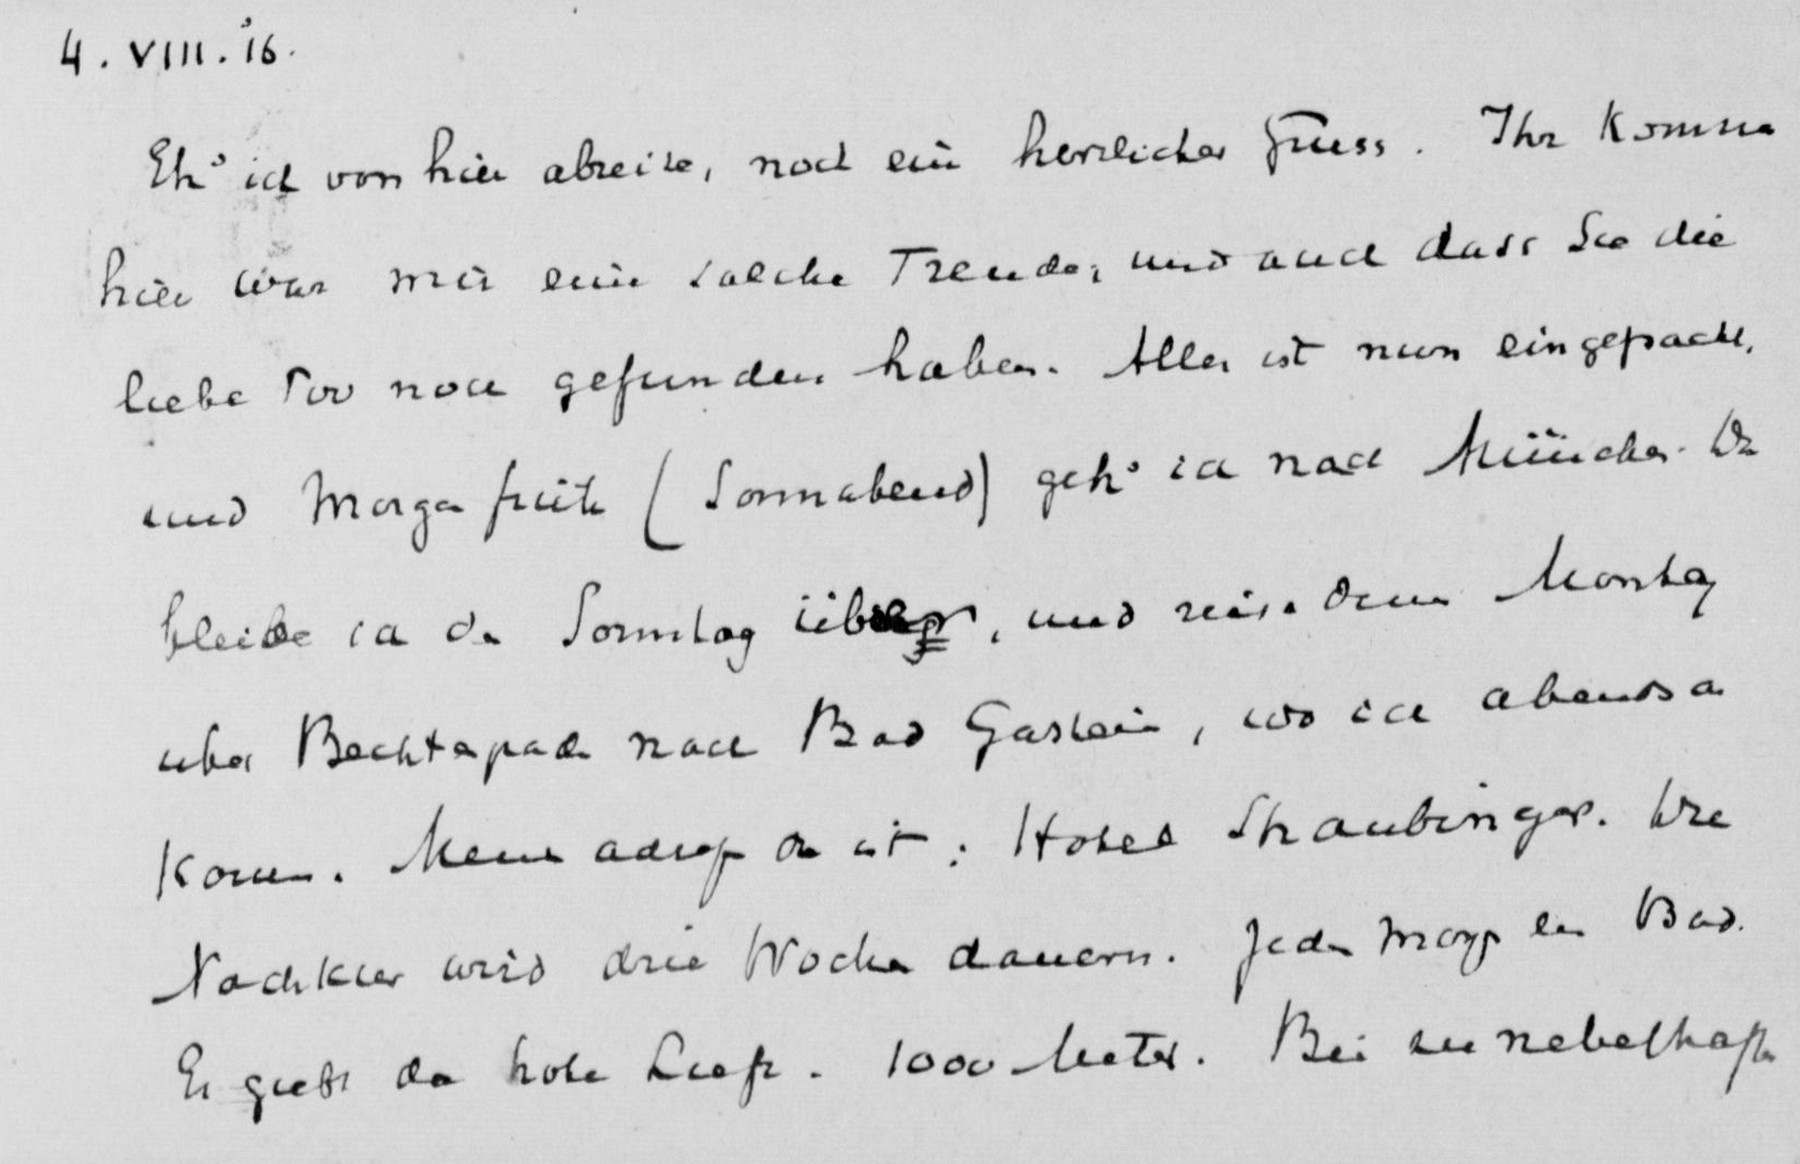 4. VIII. '16.
Eh' ich von hier abreise, noch ein herzlicher Gruss. Ihr Kommen
hier war mir eine solche Freude, und auch dass Sie die
liebe noch gefunden haben. Alles ist nun eingepackt,
und Morgen früh (Sonnabend) geh' ich nach München. Da
bleibe ich den Sonntag über, und reise dann Montag
über nach Bad Gastein, wo ich abends an
komme. Meine adresse da ist: Hotel Straubinger. Die
Nachkur wird drei Wochen dauern. Jeden Morgen ein Bad.
Es giebt da hohe Luft. 1000 Meter. Bei zu nebelhaften